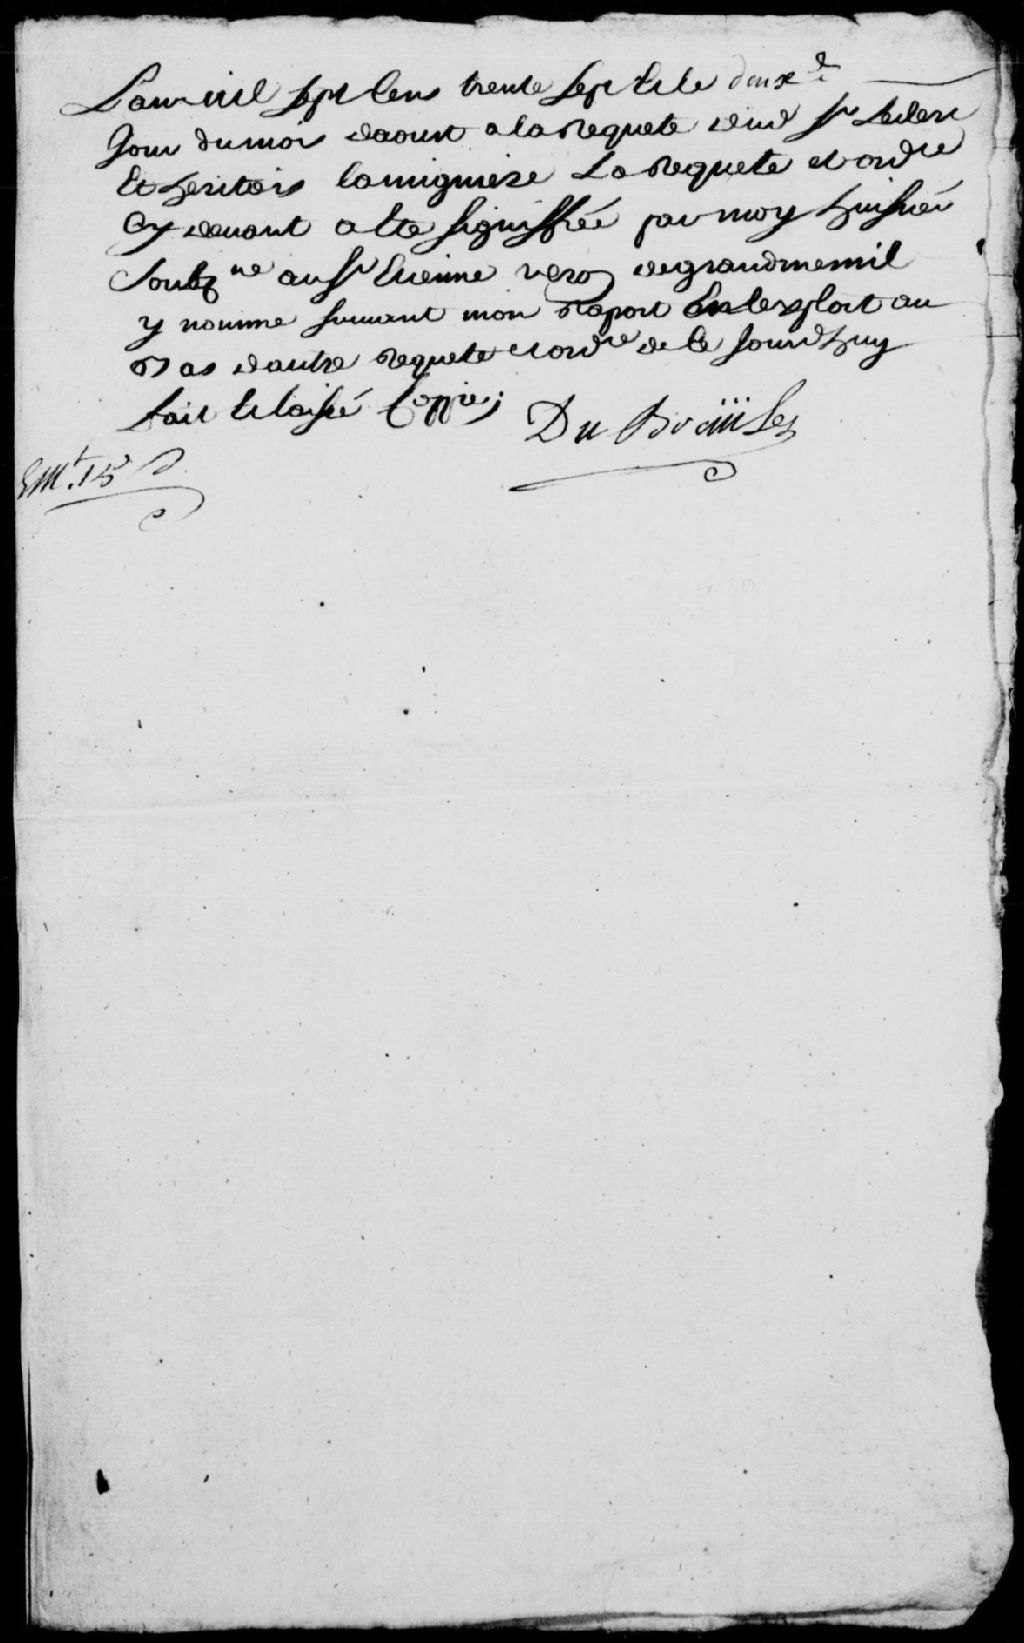 L'an mil sept cens trente sept et le deuxe
Jour du mois daoust a la requete dud Sr Leclerc
Et heritiers lamigniere La requete et ordre
Cy devant a ete signiffiée par moy huissier
Soubzne au Sr Etienne veron de grandmemil
y nomme suivant mon raport En lexploit au
bas dautre requete et ordre de ce jourdhuy
fait et laissé Coppie;
Du Brüille